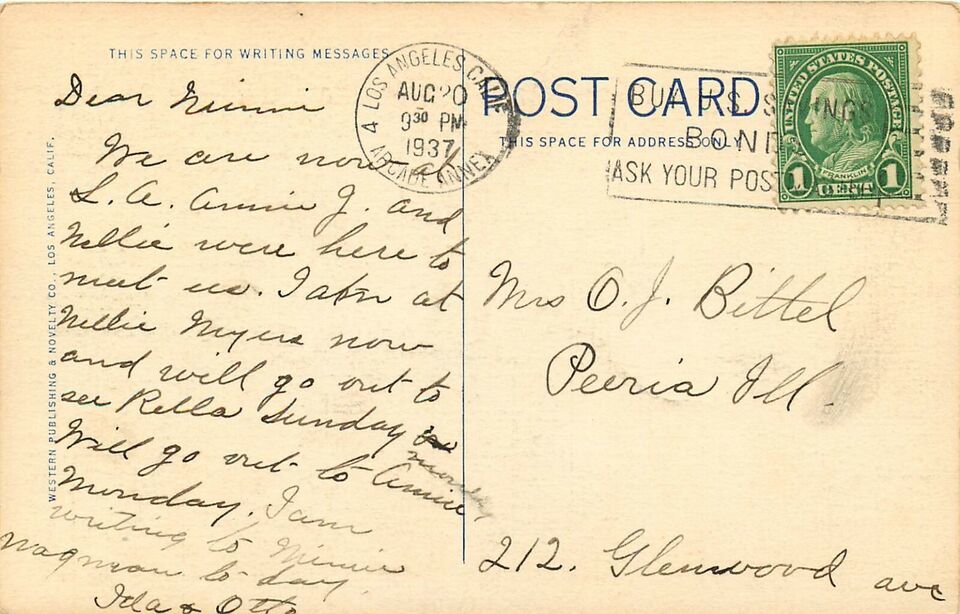 THIS SPACE FOR WRITING MESSAGES
Dear Minnie
We are now at
L. A. Annie J. and
Nellie were here to
meet us. I am at
Nellie Myers now
and will go out to
see Rella Sunday
Will go out to Annie
Monday. I am
writing to Minnie
Wagman to-day
Ida & Otto
WESTERN PUBLISHING & NOVELTY CO., LOS ANGELES, CALIF.
LOS ANGELES, CALIF.
AUG 20
9 30 PM
1937
4 ARCADE ANNEX
POST CARD
THIS SPACE FOR ADDRESS ONLY
BUY U.S. SAVINGS
BONDS
ASK YOUR POST
UNITED STATES POSTAGE
FRANKLIN
1 CENT 1
Mrs O. J. Bittel
Peeria Ill.
212. Glenwood ave